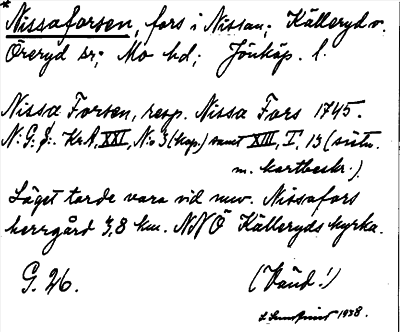 * Nissaforsen, fors i Nissan; Källeryd o.
Öreryd sr; Mo hd; Jönköp. l.
Nissa Forsen, resp. Nissa Fors 1745.
KrA, XXI, No 3 (kop.) samt XIII, I, 13 (
m. kartbeskr.).
Läget torde vara vid nuv. Nissafors
herrgård 3,8 km. NNÖ Källeryds kyrka.
G. 26. (Vänd!)
1938.